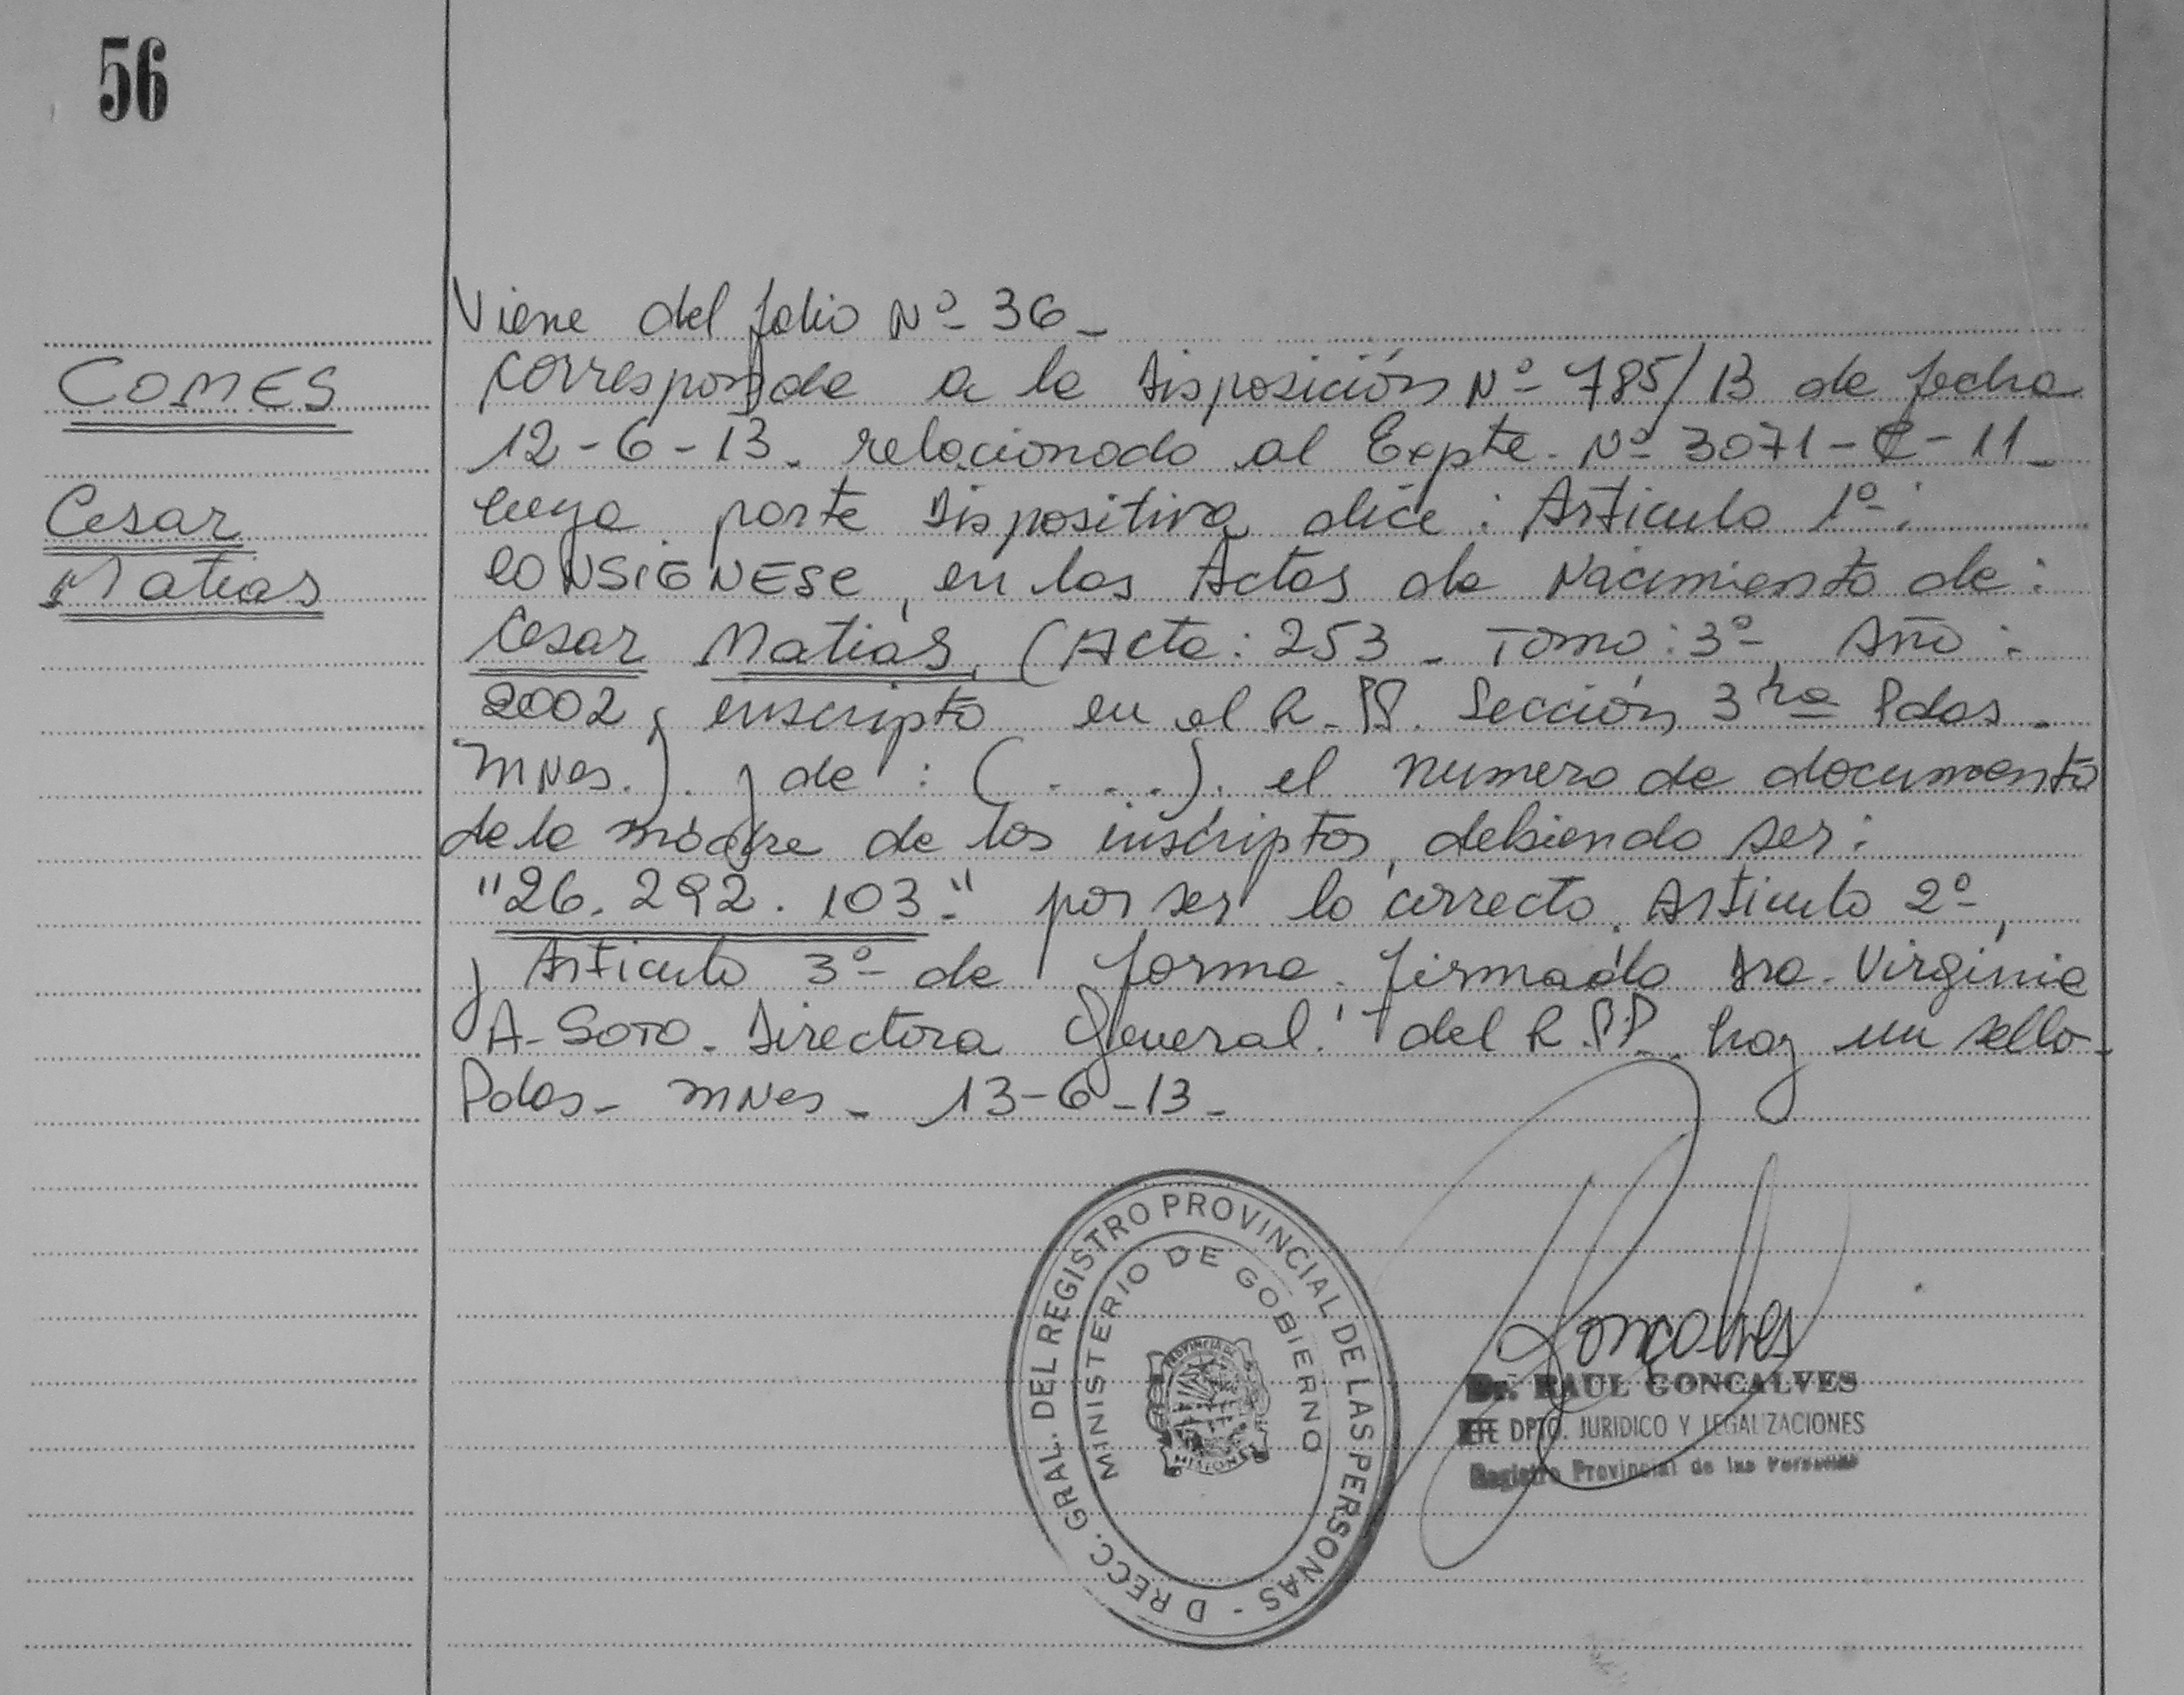 56
Viene del folio Nº 36_
COMES
Corresponde a la Disposición Nº 785/13 de fecha
12-6-13. relacionado al Expte. Nº 3071-C-11_
Cesar
Matias
cuya parte Dispositiva dice: Articulo 1º:
CONSIGNESE, en las Actas de Nacimiento de:
Cesar Matias, (Acta: 253 - Tomo: 3º, Año:
2002, inscripto en el R.PP. Sección 3ra Pdas.
MNes.). y de: (....). el numero de documento
de la madre de los inscriptos, debiendo ser:
"26.292.103." por ser lo correcto. Articulo 2º,
y Articulo 3º de forma. firmado Dra. Virginia
A. SOTO. Directora General. del R.PP. hay un sello.
Pdas- MNes- 13-6-13-
DRECC. GRAL. DEL REGISTRO PROVINCIAL DE LAS PERSONAS -
MINISTERIO DE GOBIERNO
PROVINCIA DE
MISIONES
Goncalves
Dr. RAUL GONCALVES
JEFE DPTO. JURIDICO Y LEGALIZACIONES
Registro Provincial de las Personas